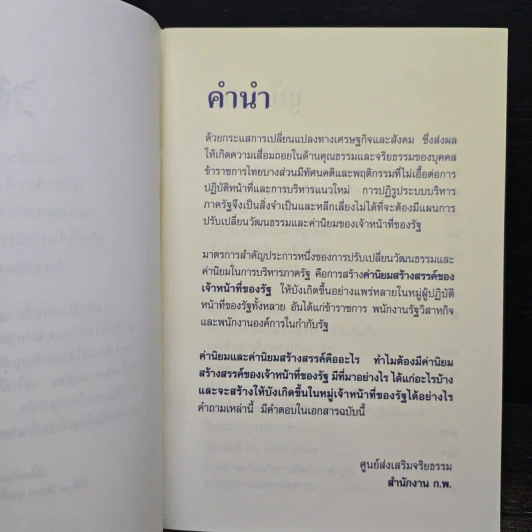 คำนำ
ด้วยกระแสการเปลี่ยนแปลงทางเศรษฐกิจและสังคม ซึ่งส่งผล
ให้เกิดความเสื่อมถอยในด้านคุณธรรมและจริยธรรมของบุคคล
ข้าราชการไทยบางส่วนมีทัศนคติและพฤติกรรมที่ไม่เอื้อต่อการ
ปฏิบัติหน้าที่และการบริหารแนวใหม่ การปฏิรูประบบบริหาร
ภาครัฐจึงเป็นสิ่งจำเป็นและหลีกเลี่ยงไม่ได้ที่จะต้องมีแผนการ
ปรับเปลี่ยนวัฒนธรรมและค่านิยมของเจ้าหน้าที่ของรัฐ
มาตรการสำคัญประการหนึ่งของการปรับเปลี่ยนวัฒนธรรมและ
ค่านิยมในการบริหารภาครัฐ คือการสร้างค่านิยมสร้างสรรค์ของ
เจ้าหน้าที่ของรัฐ ให้บังเกิดขึ้นอย่างแพร่หลายในหมู่ผู้ปฏิบัติ
หน้าที่ของรัฐทั้งหลาย อันได้แก่ข้าราชการ พนักงานรัฐวิสาหกิจ
และพนักงานองค์การในกำกับรัฐ
ค่านิยมและค่านิยมสร้างสรรค์คืออะไร ทำไมต้องมีค่านิยม
สร้างสรรค์ของเจ้าหน้าที่ของรัฐ มีที่มาอย่างไร ได้แก่อะไรบ้าง
และจะสร้างให้บังเกิดขึ้นในหมู่เจ้าหน้าที่ของรัฐได้อย่างไร
คำถามเหล่านี้ มีคำตอบในเอกสารฉบับนี้
ศูนย์ส่งเสริมจริยธรรม
สำนักงาน ก.พ.